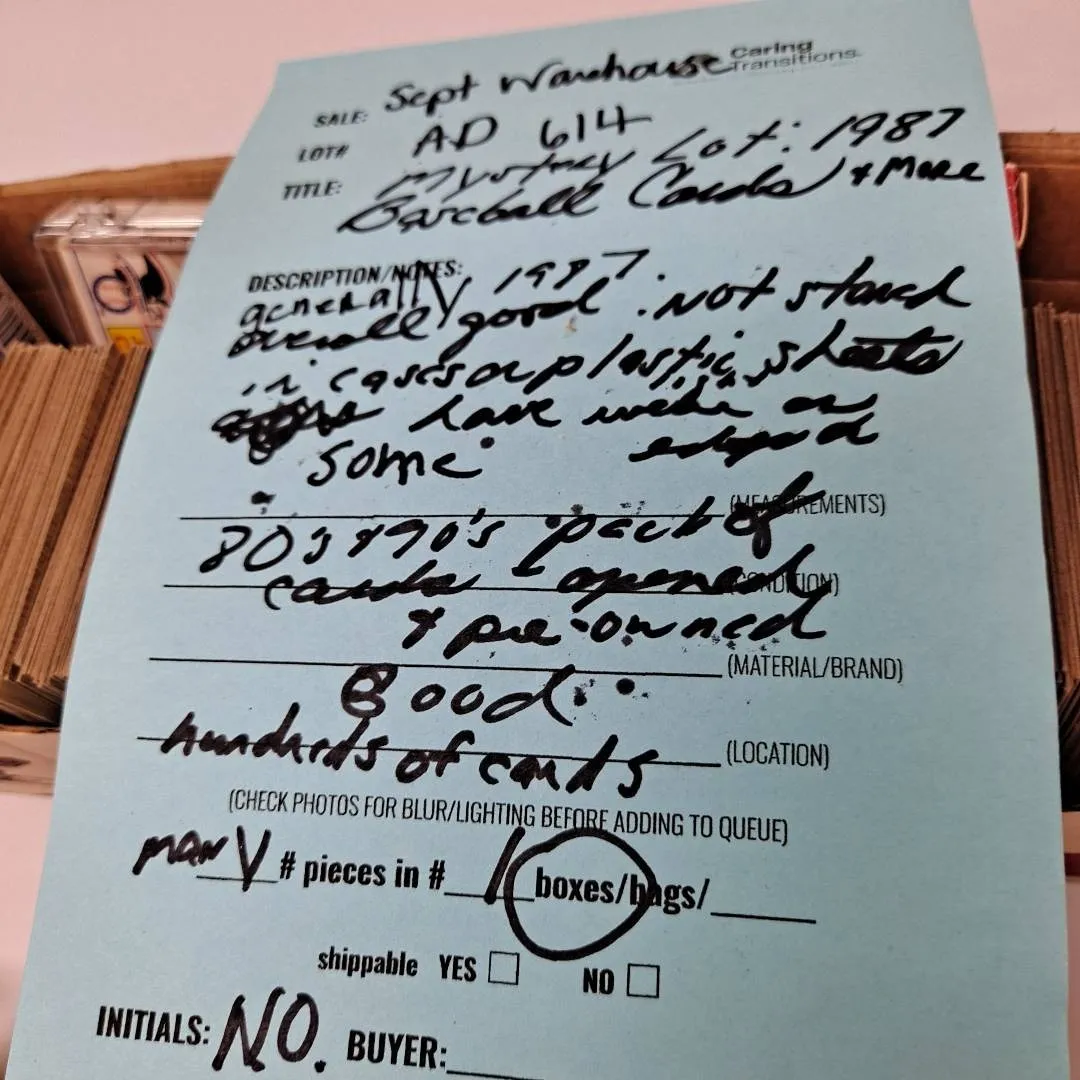 Caring
Transitions
SALE: Sept Warehouse
LOT# AD 614
TITLE: Mystrey Lot: 1987
Baseball Cards & More
DESCRIPTION/NOTES:
generally 1987.
overall good. Not stored
in cases or plastic sheets
have wear on
some edges
(MEASUREMENTS)
80's & 90's pack of
cards - opened
(CONDITION)
& pre-owned
(MATERIAL/BRAND)
Good
hundreds of cards
(LOCATION)
(CHECK PHOTOS FOR BLUR/LIGHTING BEFORE ADDING TO QUEUE)
many # pieces in # 1 boxes/bags/
shippable YES NO
INITIALS: N.O. BUYER: